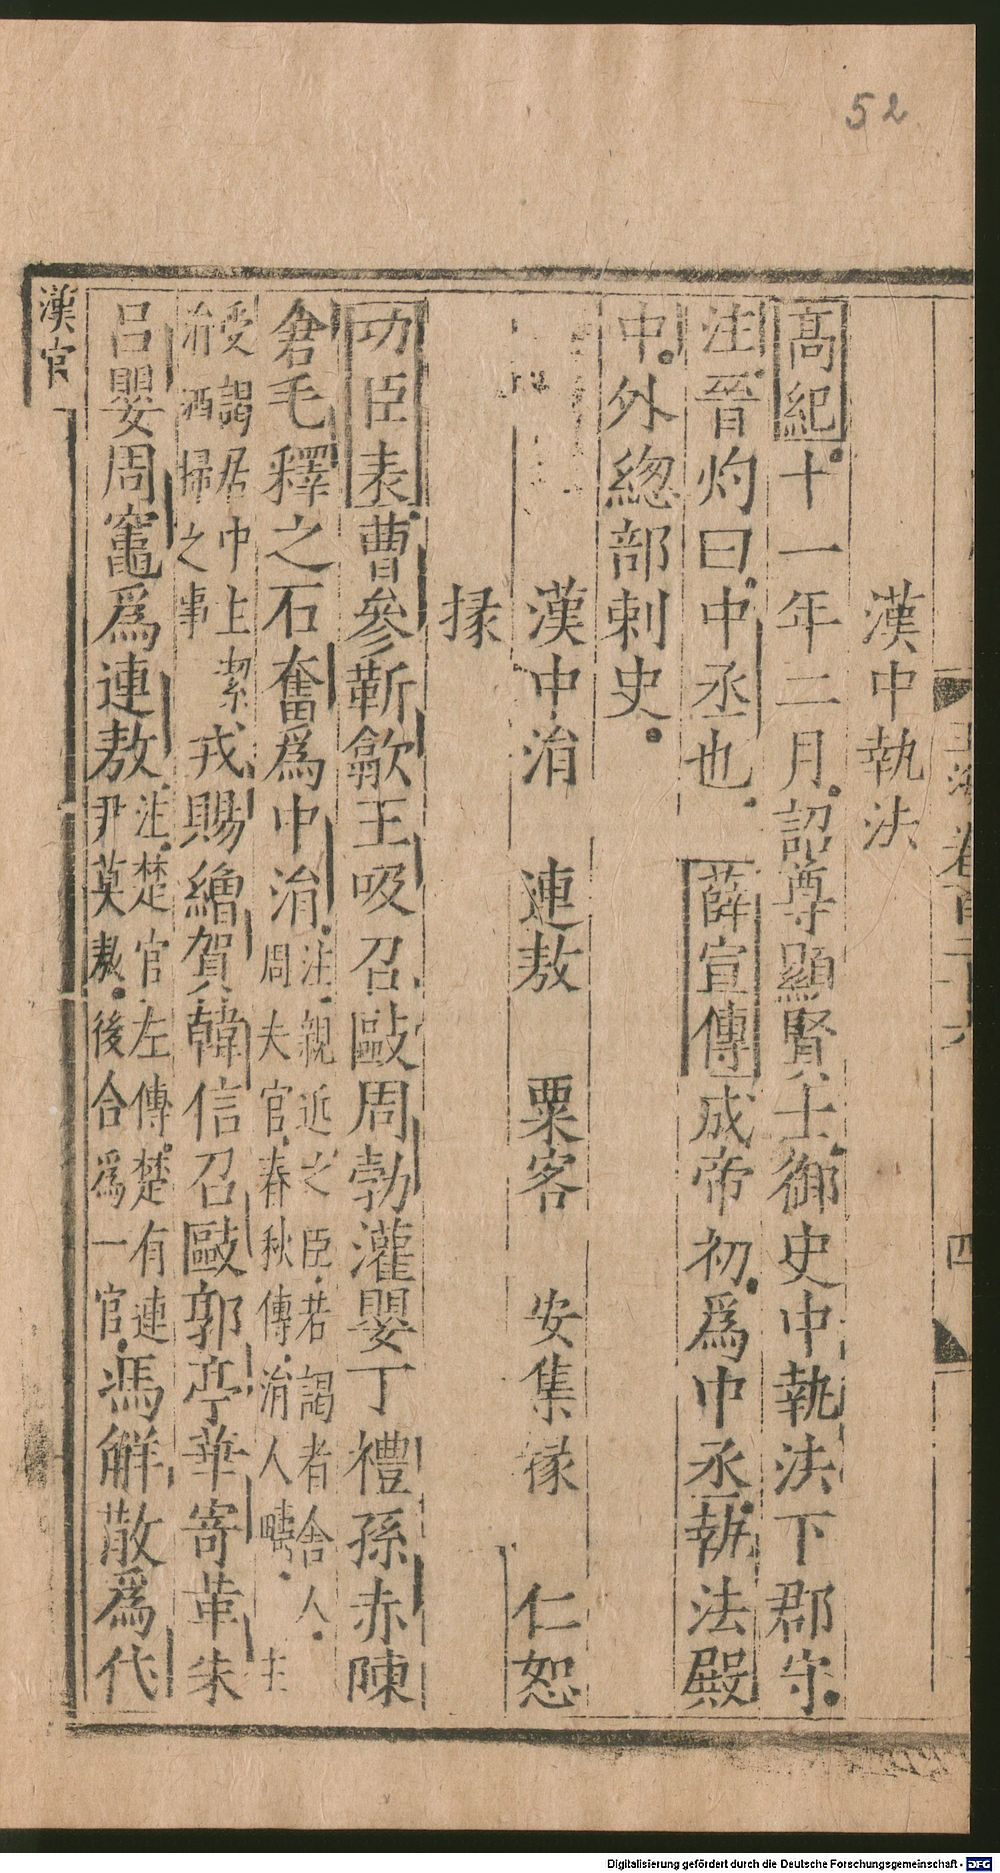 52
玉海卷百二十六
四
漢中執法
高紀十一年二月詔尊顯賢士御史中執法下郡守
注晉灼曰中丞也 薛宣傳成帝初爲中丞執法殿
中外總部刺史
漢中涓 連敖 粟客 安集掾 仁恕
掾
功臣表曹參靳歙王吸召歐周勃灌嬰丁禮孫赤陳
倉毛釋之石奮爲中涓注親近之臣若謁者舍人
周夫官春秋傳涓人疇主
受謁居中上絜
涓洒掃之事戎賜繒賀韓信召歐郭亭華寄革朱
呂嬰周竈爲連敖注楚官左傳楚有連
尹莫敖後合爲一官馮解散爲代
漢官
Digitalisierung gefördert durch die Deutsche Forschungsgemeinschaft - DFG